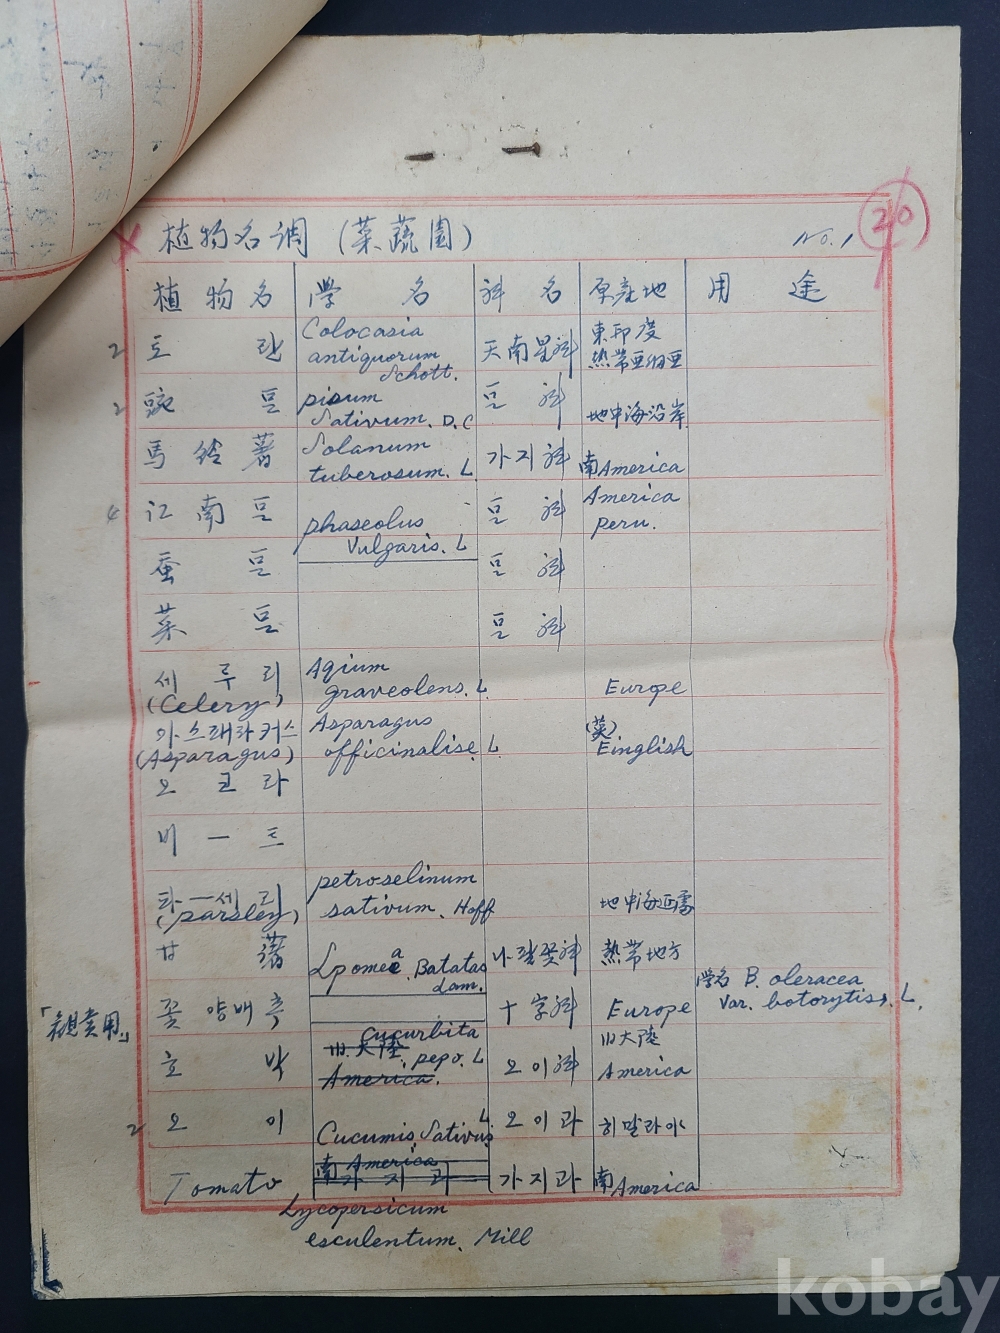 植物名調 (菜蔬園)
No. 1
20
植物名 学名 科名 原産地 用途
2 토란 Colocasia antiquorum Schott. 天南星科 東印度 熱帯亜細亜
2 豌豆 pisum Sativum. D.C 豆科 地中海沿岸
馬鈴薯 Solanum tuberosum. L 가지科 南America
4 江南豆 phaseolus Vulgaris. L 豆科 America peru.
蚕豆 豆科
菜豆 豆科
세루리 (Celery) Apium graveolens. L Europe
아스패라커스 (Asparagus) Asparagus officinalise. L (英) Einglish
오코라
비ー트
파ー세리 (parsley) petroselinum sativum. Hoff 地中海
甘藷 Lpomea. Batatas Lam. 나팔꽃科 熱帯地方
「観賞用」 꽃양배추 十字科 Europe 学名 B. oleracea Var. botorytiss. L.
호박 Cucurbita pepo. L 旧大陸 America. 오이科 旧大陸 America
2 오이 Cucumis Sativus L 오이과 히말라야
Tomato 南America 가지과 가지과 南America
Lycopersicum
esculentum. Mill
kobay